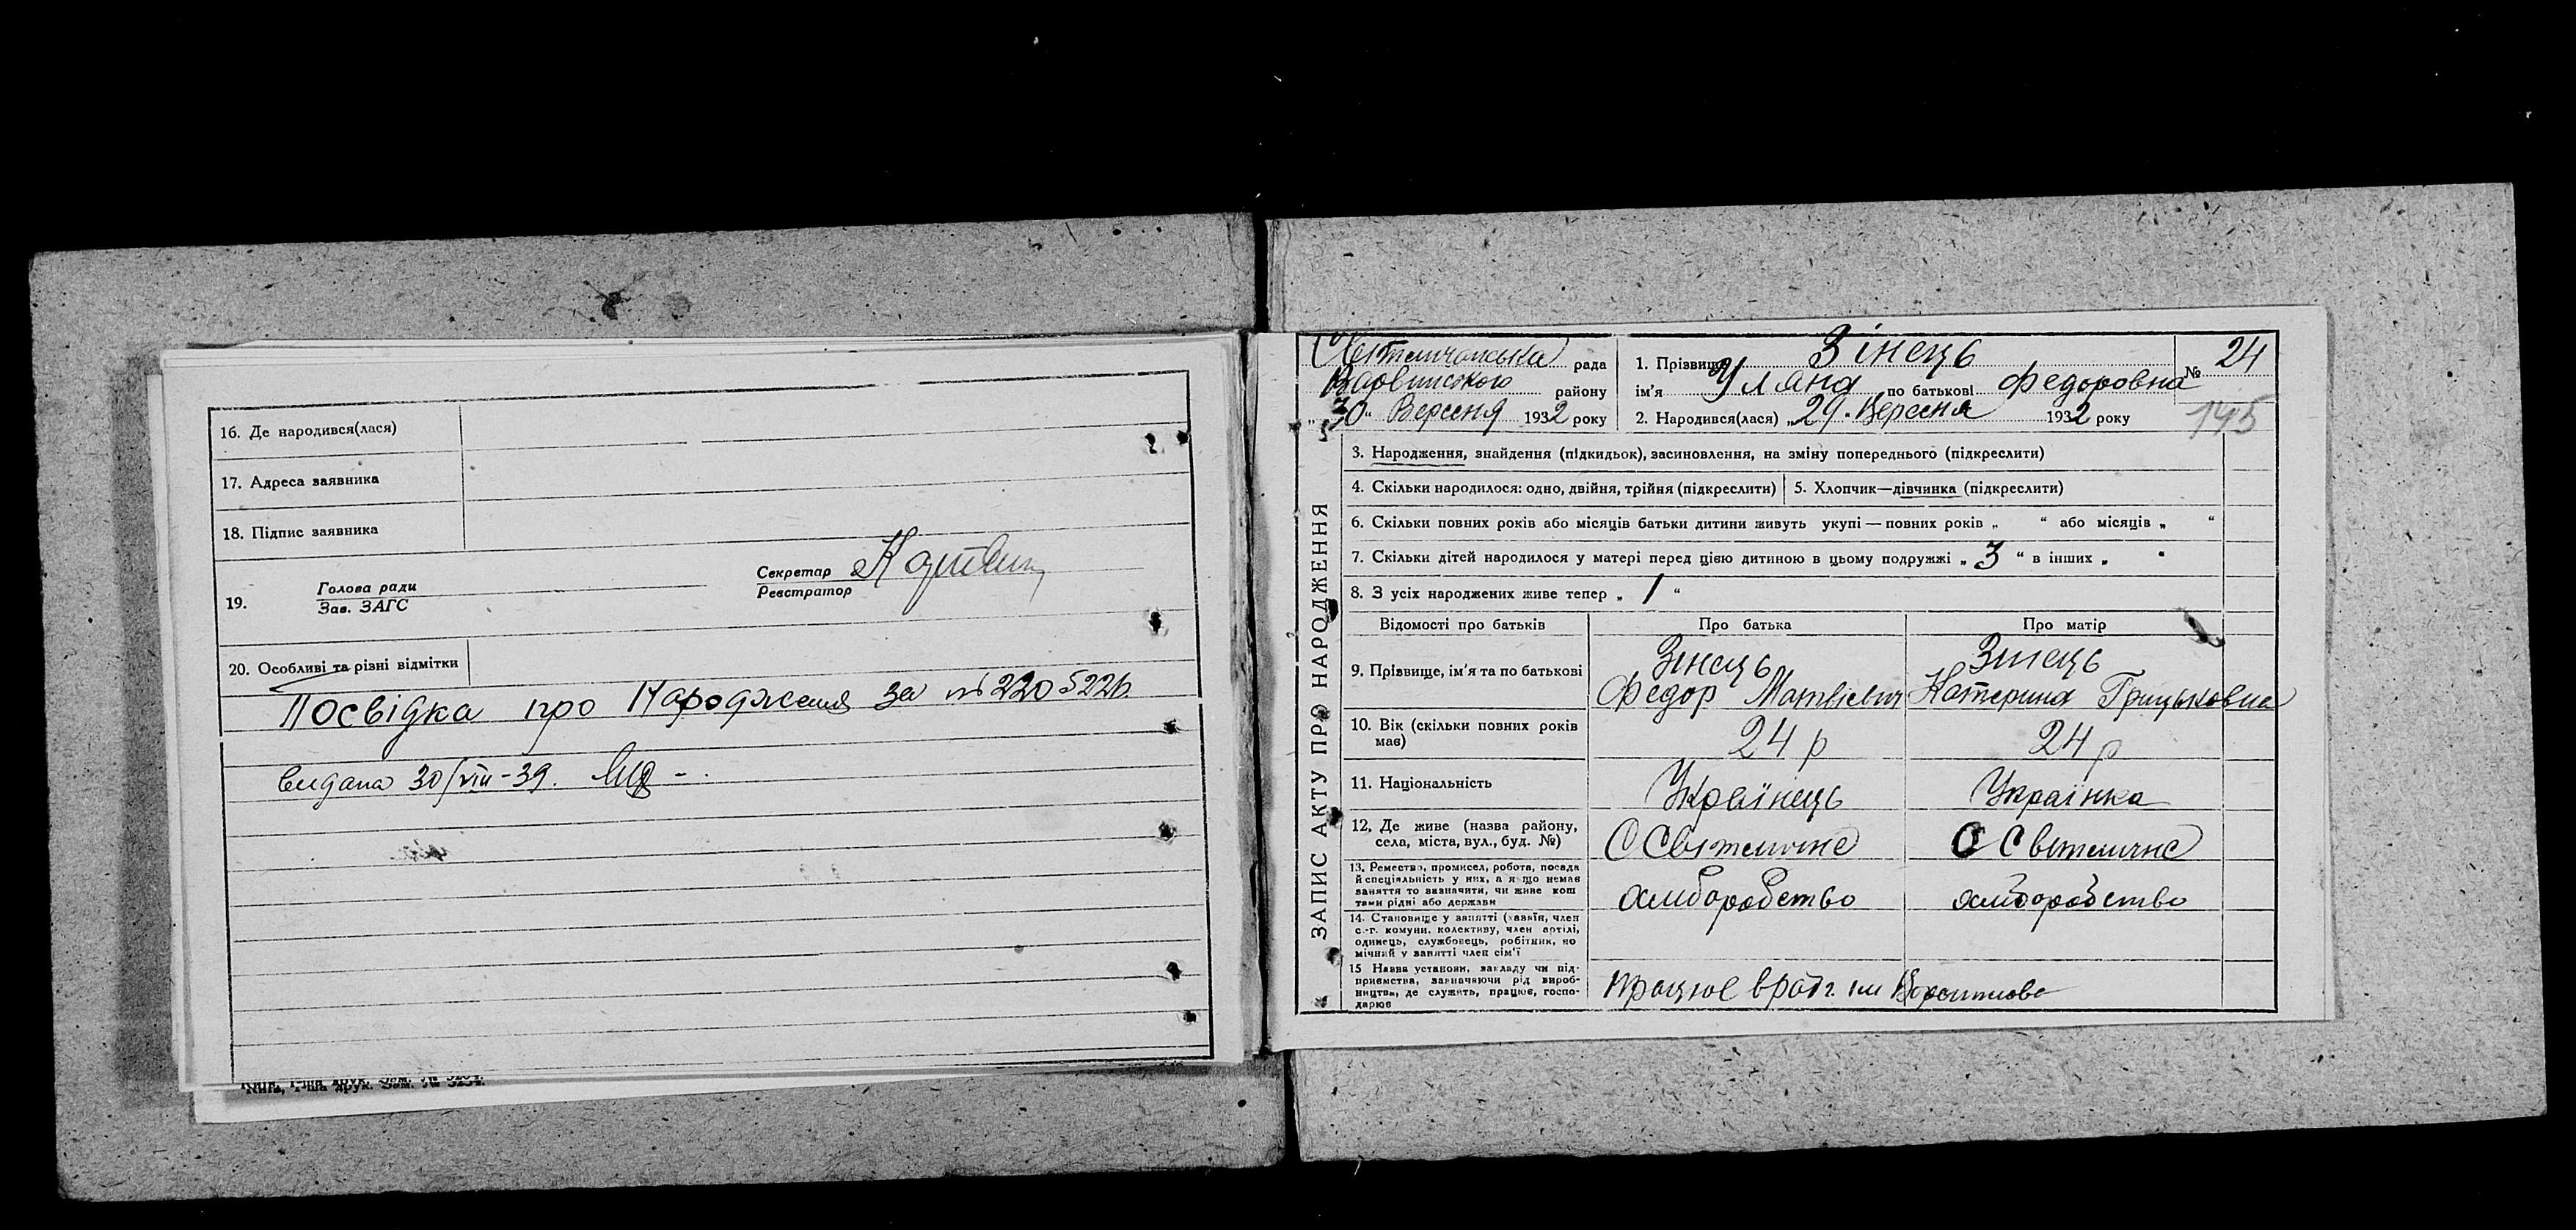 16. Де народився(лася)
17. Адреса заявника
18. Підпис заявника
19. Голова ради
Зав. ЗАГС
Секретар
Реєстратор
20. Особливі та різні відмітки
Посвідка про Народження за № 2205226
видана 30/VIII-39.
Київ, 1-ша друк. Зам. № 3254.
ЗАПИС АКТУ ПРО НАРОДЖЕННЯ
Світличанська рада
Варвинського району
„30“ Вересня 1932 року
1. Прізвище Зінець
ім'я Уляна по батькові Федоровна
№ 24
2. Народився(лася) „29. Вересня 1932 року
145
3. Народження, знайдення (підкидьок), засиновлення, на зміну попереднього (підкреслити)
4. Скільки народилося: одно, двійня, трійня (підкреслити)
5. Хлопчик—дівчинка (підкреслити)
6. Скільки повних років або місяців батьки дитини живуть укупі — повних років „ “ або місяців „ “
7. Скільки дітей народилося у матері перед цією дитиною в цьому подружжі „ 3 “ в інших „ “
8. З усіх народжених живе тепер „ 1 “
Відомості про батьків
Про батька
Про матір
9. Прізвище, ім'я та по батькові
Зінець
Федор Матвієвич
Зінець
Катерина Грицьковна
10. Вік (скільки повних років має)
24 р
24 р
11. Національність
Українець
Українка
12. Де живе (назва району,
села, міста, вул., буд. №)
С Світличне
С Світличне
13. Ремество, промисел, робота, посада
й спеціяльність у них, а якщо немає
заняття то визначити, чи живе кош
тами рідні або держави
хліборобство
хліборобство
14. Становище у занятті (хазяїн, член
с.-г. комуни, колективу, член артілі,
одинець, службовець, робітник, по
мічний у занятті член сім'ї
15 Назва установи, закладу чи під-
приємства, зазначаючи рід вироб-
ництва, де служить, працює, госпо-
дарює
працює в імені Ворошилова